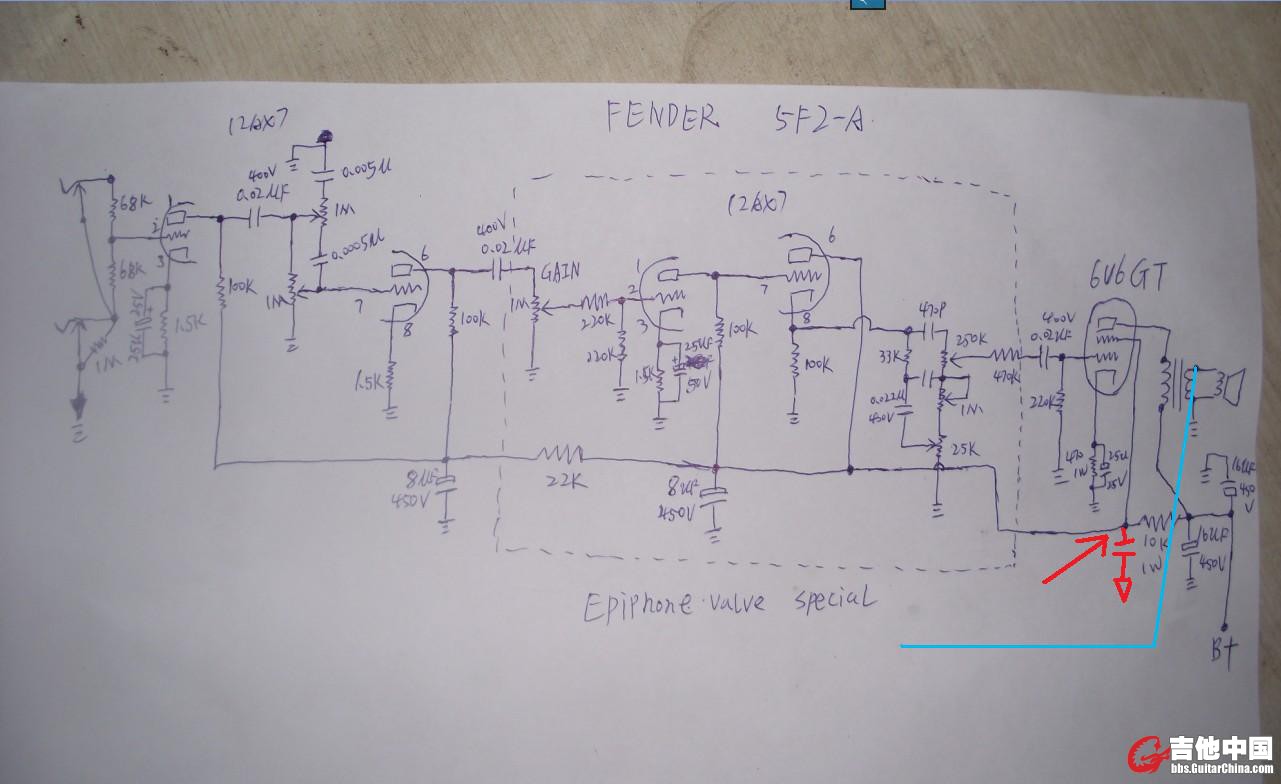 FENDER 5F2-A
12AX7
0.005U
400V
0.02UF
68K
1
1M
2
12AX7
0.0005U
400V
0.02UF
6
6
3
68K
GAIN
1
6V6GT
100K
1M
7
1M
2
7
470P
400V
0.02UF
25UF
25V
1.5K
8
100K
220K
3
100K
8
250K
1M
25UF
50V
33K
1.5K
220K
1.5K
100K
470K
0.022U
450V
1M
220K
25K
470
1W
25U
25V
16UF
450
V
8UF
450V
22K
8UF
450V
10K
1W
16UF
450V
Epiphone valve special
B+
吉他中国
bbs.GuitarChina.com